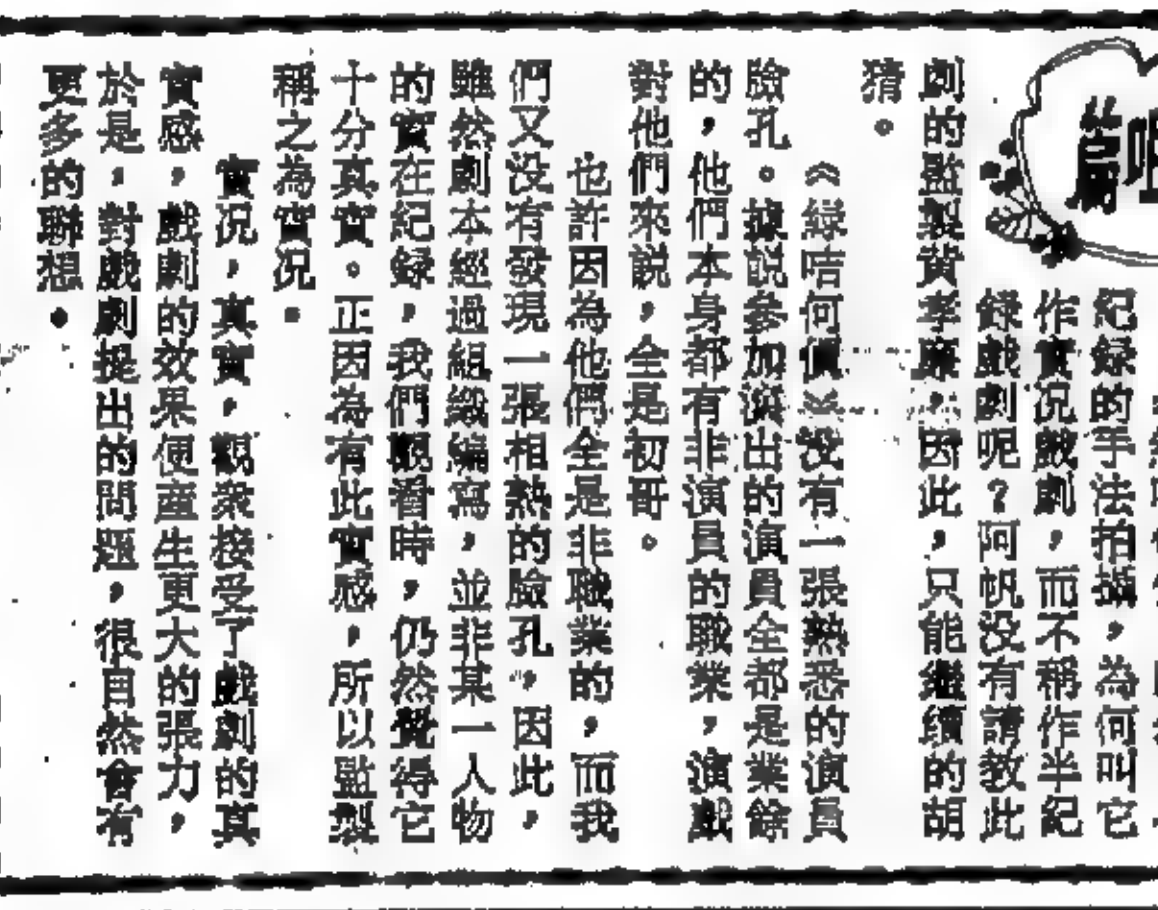 紀錄的手法拍攝，為何叫它
作實況戲劇，而不稱作半紀
錄戲劇呢？阿帆没有請教此
劇的監製黄孝廉，因此，只能繼續的胡
猜。
《綠咭何價》没有一張熟悉的演員
臉孔。據説參加演出的演員全都是業餘
的，他們本身都有非演員的職業，演戲
對他們來説，全是初哥。
也許因為他們全是非職業的，而我
們又没有發現一張相熟的臉孔，因此，
雖然劇本經過組織編寫，並非某一人物
的實在紀錄，我們觀看時，仍然覺得它
十分真實。正因為有此實感，所以監製
稱之為實况。
實况，真實，觀衆接受了戲劇的真
實感，戲劇的效果便産生更大的張力，
於是，對戲劇提出的問題，很自然會有
更多的聯想。